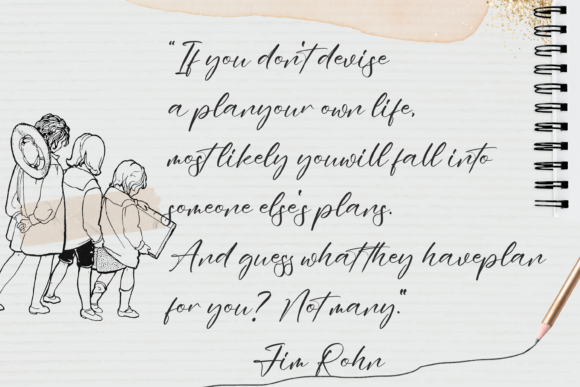 "If you don't devise
a planyour own life,
most likely youwill fall into
someone else's plans.
And guess what they haveplan
for you? Not many."
Jim Rohn